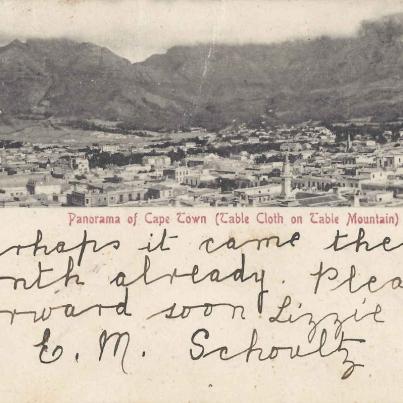 Panorama of Cape Town (Table Cloth on Table Mountain)
erhaps it came the
nth already. Plea
rward soon Lizzie
E. M. Schoultz